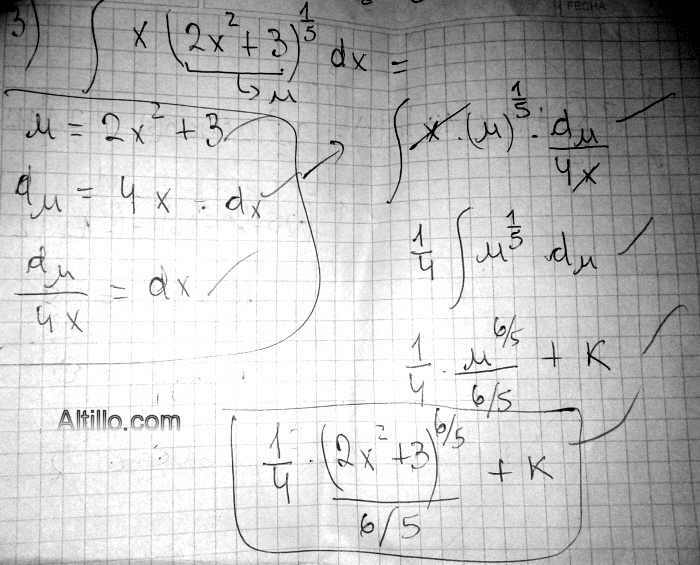 FECHA
3) ∫ x (2x² + 3)^{1/5} dx =
↳ μ
μ = 2x² + 3
dμ = 4x · dx
dμ/4x = dx
∫ x · (μ)^{1/5} · dμ/4x
1/4 ∫ μ^{1/5} dμ
1/4 · μ^{6/5}/(6/5) + K
Altillo.com
1/4 · (2x² + 3)^{6/5}/(6/5) + K